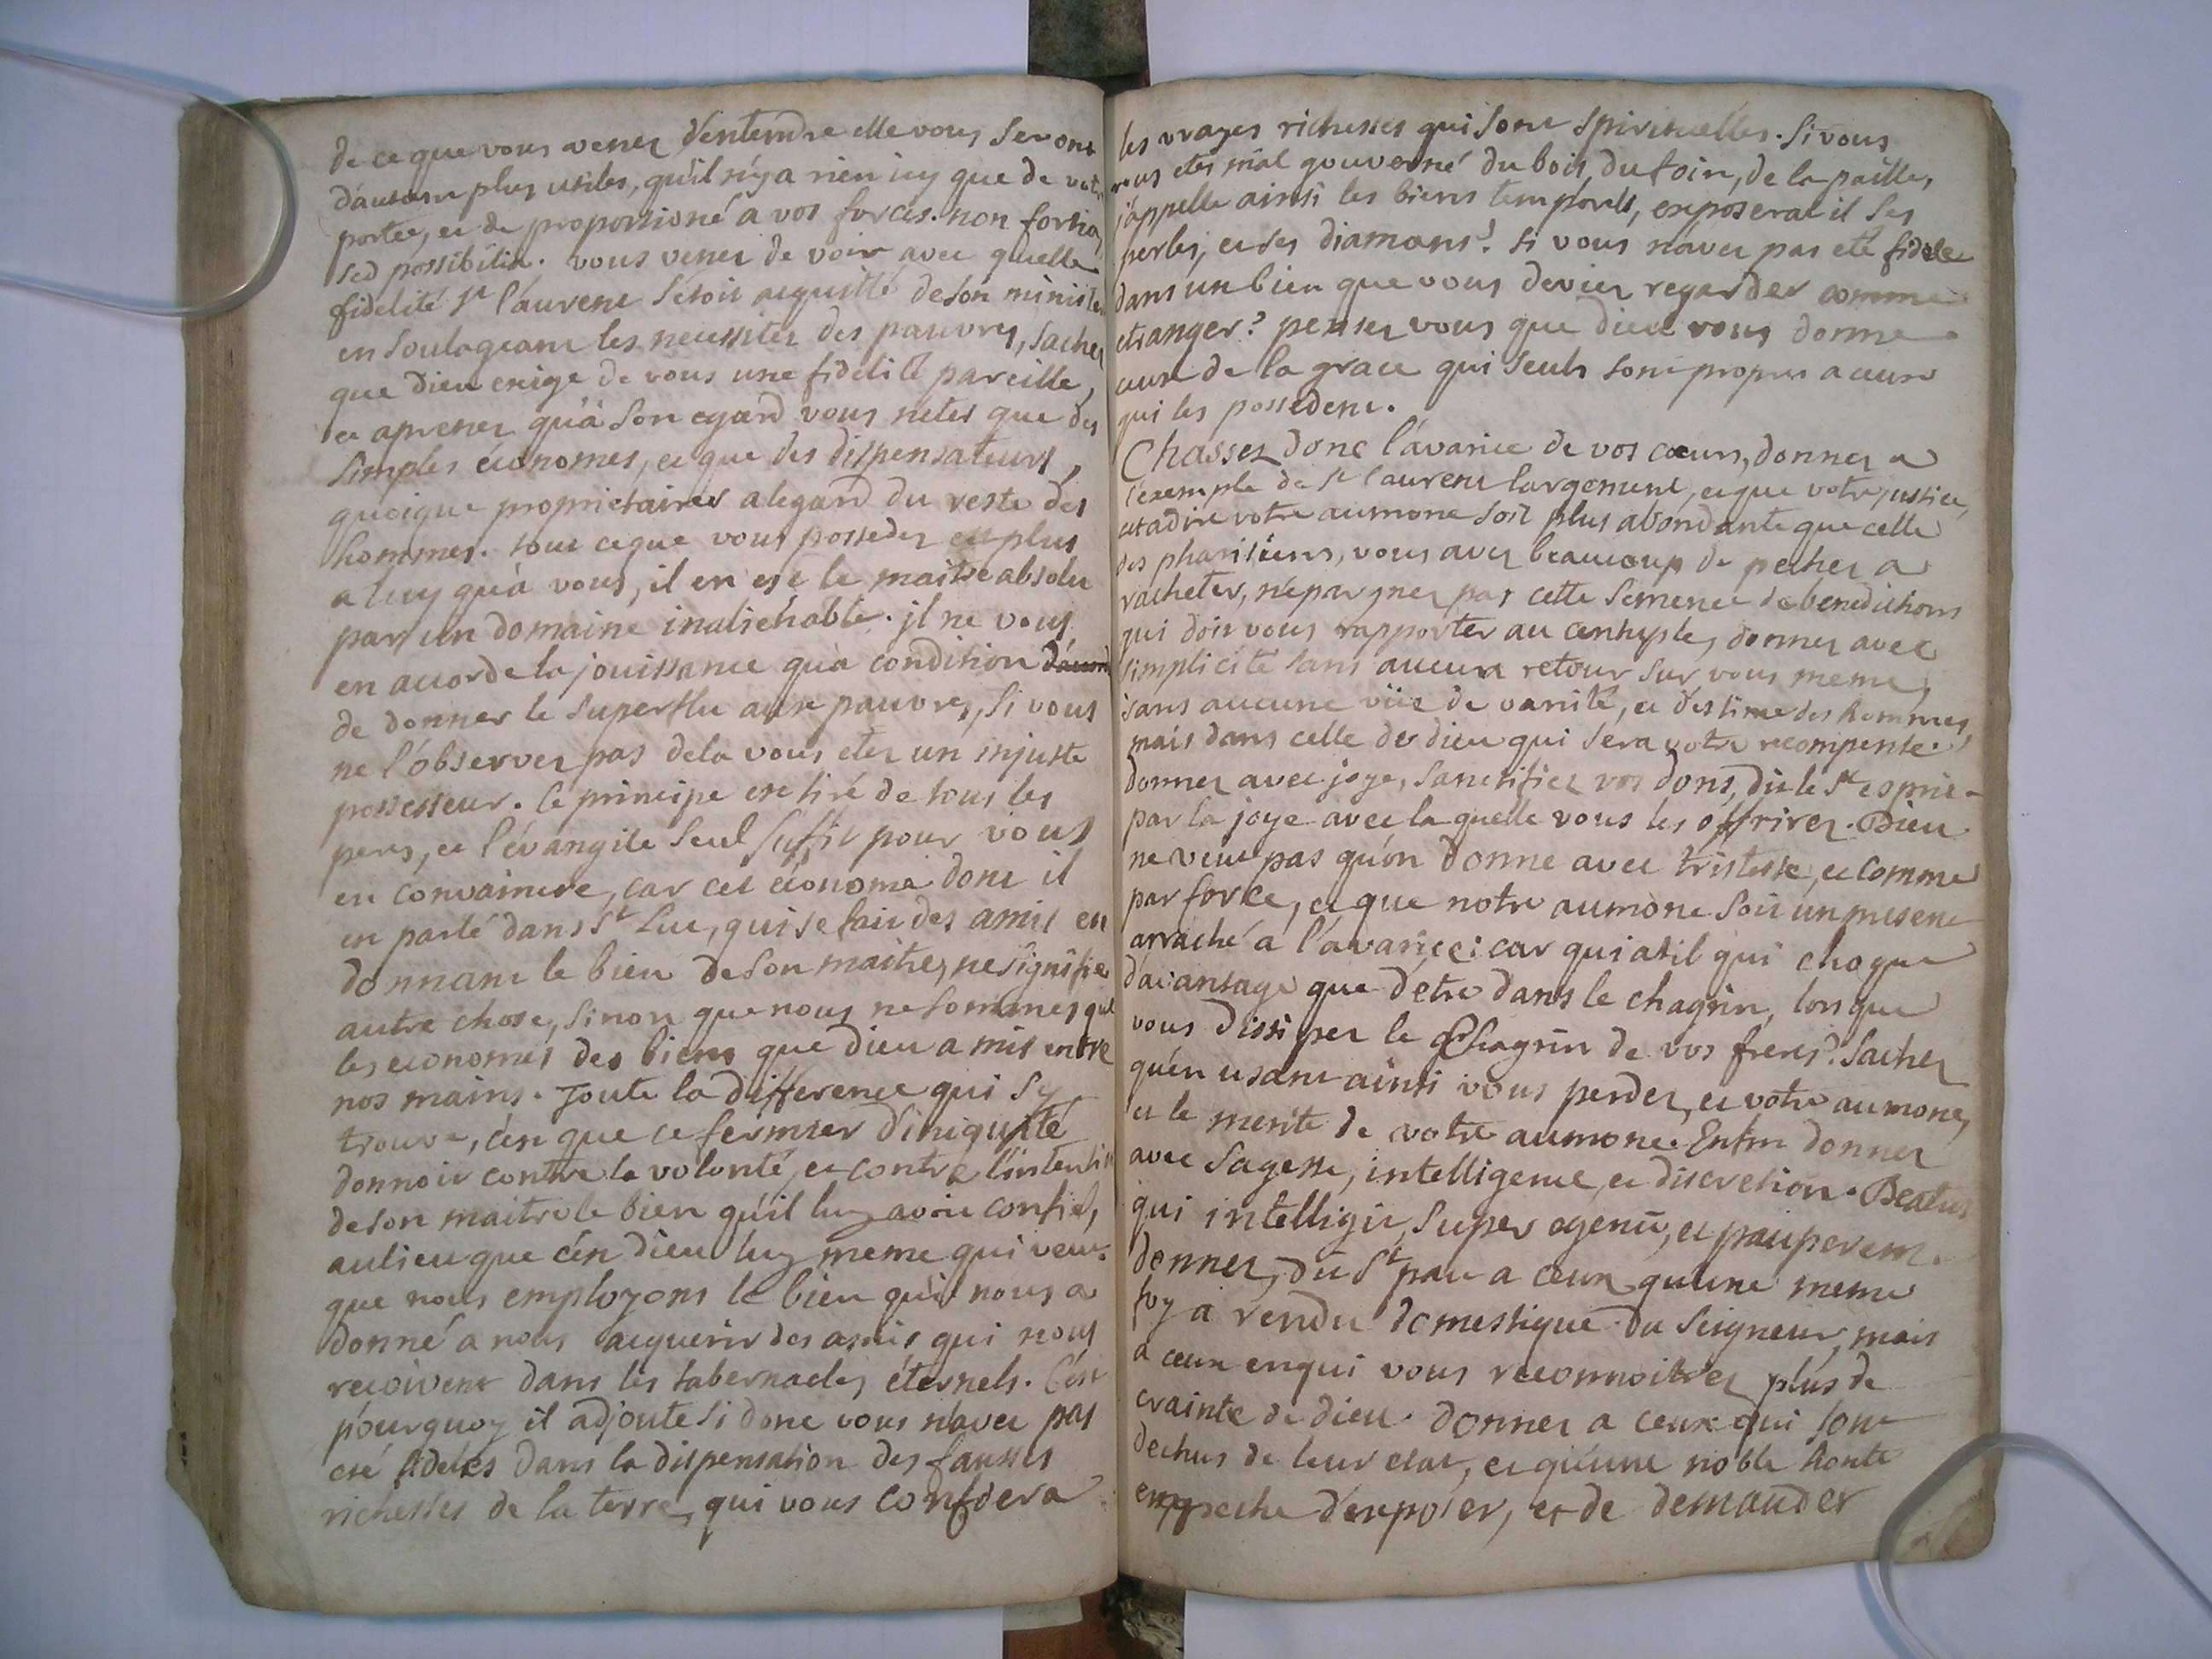 de ce que vous venez d'entendre elle vous seront
d'autant plus utiles, qu'il n'y a rien icy que de votre
portée, et de proportioné a vos forces. non fortia,
sed possibilia. vous venez de voir avec quelle
fidelité st laurent s'etoit acquitté de son ministere
en soulageant les necessitez des pauvres, sachez
que dieu exige de vous une fidelité pareille,
et aprenez qu'à son egard vous n'etes que des
simples économes, et que des dispensateurs,
quoique proprietaires a legard du reste des
hommes. tout ce que vous possedez est plus
a luy qu'à vous, il en est le maitre absolu
par un domaine inalienable. il ne vous
en accorde la jouissance qu'à condition
de donner le superflu aux pauvres, si vous
ne l'observez pas dela vous etes un injuste
possesseur. ce principe est tiré de tous les
peres, et l'évangile seul suffit pour vous
en convaincre, car cet économe dont il
est parlé dans st Luc, qui se fait des amis en
donnant le bien de son maitre, ne signifie
autre chose, sinon que nous ne sommes que
les economes des biens que dieu a mis entre
nos mains. Toute la difference qui s'y
trouve, c'est que ce fermier d'iniquité
donnoit contre la volonté, et contre l'intention
de son maitre le bien qu'il luy avoit confié,
aulieu que c'est dieu luy meme qui veut
que nous employons le bien qu'il nous a
donné a nous acquerir des amis qui nous
recoivent dans les tabernacles éternels. C'est
pourquoy il adjoute si donc vous n'avez pas
eté fideles dans la dispensation des fausses
richesses de la terre, qui vous confiera
les vrayes richesses qui sont spirituelles. si vous
vous etes mal gouverné du bois, du foin, de la paille,
j'appelle ainsi les biens temporels, exposerat il ses
perles, et ses diamans? si vous n'avez pas eté fidele
dans un bien que vous deviez regarder comme
etranger? pensez vous que dieu vous donne
ceux de la grace qui seuls sont propres a ceux
qui les possedent.
Chassez donc l'avarice de vos cœurs, donnez a
l'exemple de st laurent largement, et que votre justice,
cetadire votre aumone soit plus abondante que celle
des pharisiens, vous avez beaucoup de pechez a
racheter, n'epargnez pas cette semence de benedictions
qui doit vous rapporter au centuple, donnez avec
simplicité sans aucun retour sur vous meme,
sans aucune vüe de vanité, et d'estime des hommes,
mais dans celle de dieu qui sera votre recompense.
donnez avec joye, sanctifiez vos dons, dit le st esprit
par la joye avec la quelle vous les offrirez. Dieu
ne veut pas qu'on donne avec tristesse, et comme
par force, et que notre aumone soit un present
arraché a l'avarice: car qui atil qui choque
d'avantage que d'etre dans le chagrin, lors que
vous dissipez le Chagrin de vos freres? sachez
qu'en usant ainsi vous perdez, et votre aumone,
et le merite de votre aumone. Enfin donnez
avec sagesse, intelligence, et discretion. Beatus
qui intelligit super egenū, et pauperem.
donnez, dit st paul a ceux qu'une meme
foy a rendu domestique du seigneur, mais
a ceux enqui vous reconnoitrez plus de
crainte de dieu. donnez a ceux qui sont
dechus de leur etat, et qu'une noble honte
empeche d'exposer, et de demander